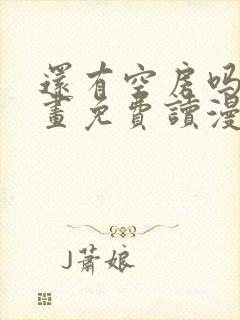 還有空房吗
畫免費讀漫
J蕭娘